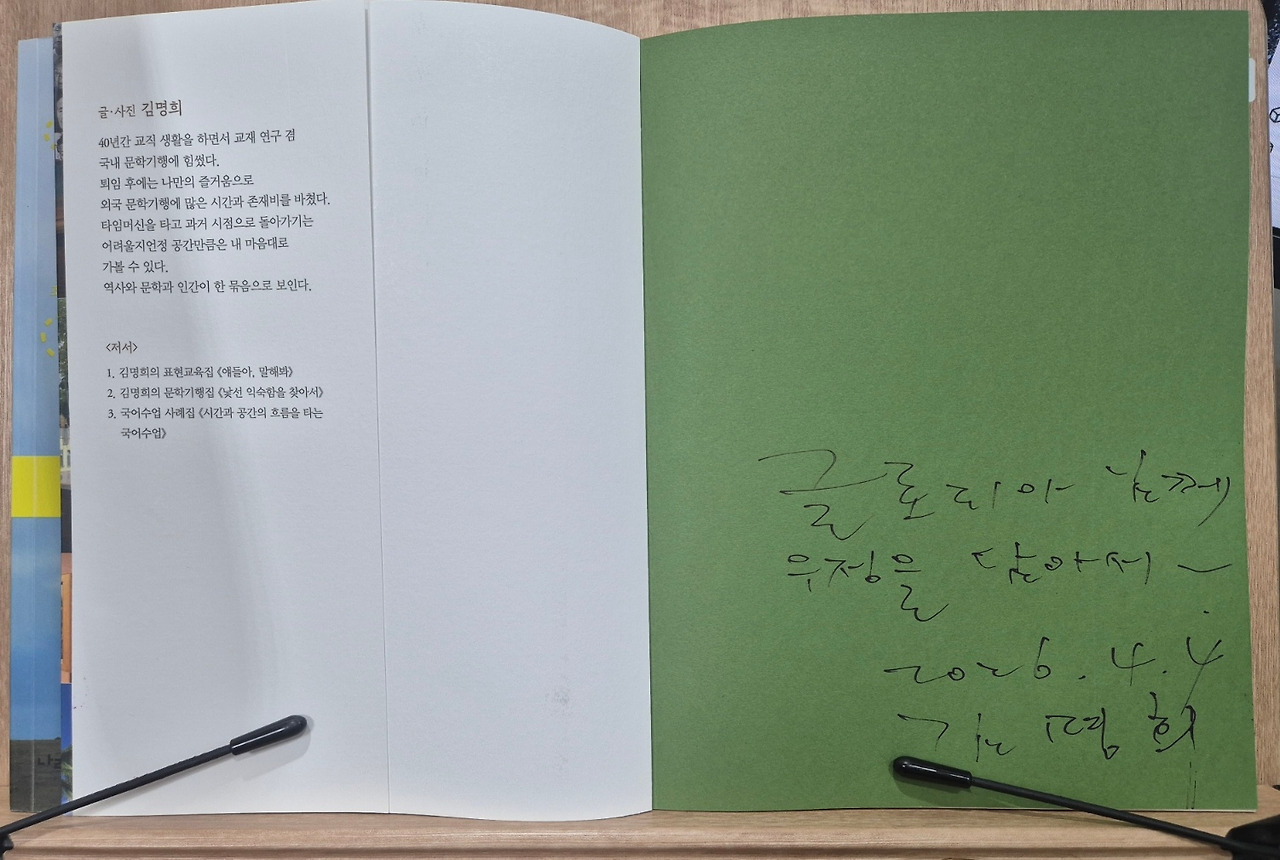 글·사진 김명희
40년간 교직 생활을 하면서 교재 연구 겸
국내 문학기행에 힘썼다.
퇴임 후에는 나만의 즐거움으로
외국 문학기행에 많은 시간과 존재비를 바쳤다.
타임머신을 타고 과거 시점으로 돌아가기는
어려울지언정 공간만큼은 내 마음대로
가볼 수 있다.
역사와 문학과 인간이 한 묶음으로 보인다.
<저서>
1. 김명희의 표현교육집 《얘들아, 말해봐》
2. 김명희의 문학기행집 《낯선 익숙함을 찾아서》
3. 국어수업 사례집 《시간과 공간의 흐름을 타는
국어수업》
글로리아 님께
우정을 담아서 ~
2026. 4. 4
김명희